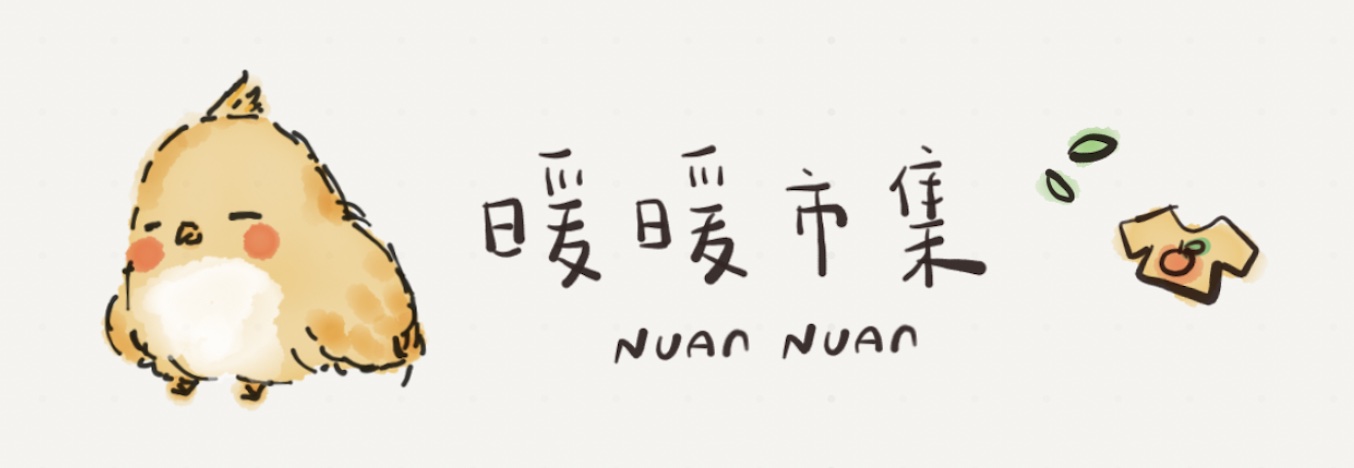 暖暖市集
NUAN NUAN